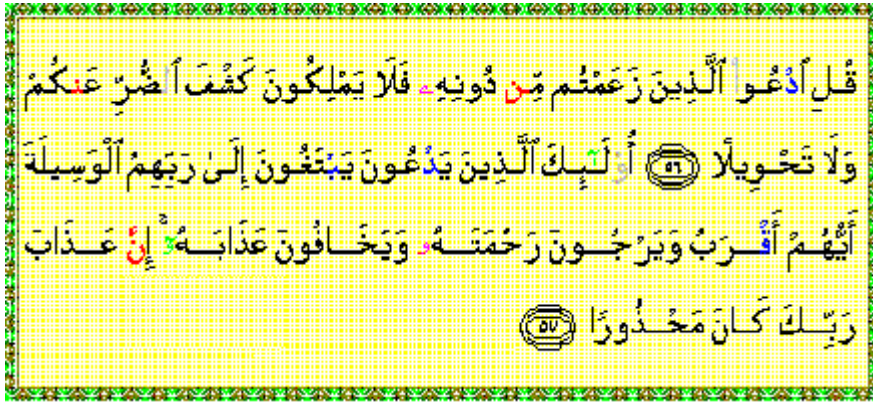 قُلِ ٱدْعُوا۟ ٱلَّذِينَ زَعَمْتُم مِّن دُونِهِۦ فَلَا يَمْلِكُونَ كَشْفَ ٱلضُّرِّ عَنكُمْ
وَلَا تَحْوِيلًا ٥٦ أُو۟لَـٰٓئِكَ ٱلَّذِينَ يَدْعُونَ يَبْتَغُونَ إِلَىٰ رَبِّهِمُ ٱلْوَسِيلَةَ
أَيُّهُمْ أَقْرَبُ وَيَرْجُونَ رَحْمَتَهُۥ وَيَخَافُونَ عَذَابَهُۥٓ ۚ إِنَّ عَذَابَ
رَبِّكَ كَانَ مَحْذُورًا ٥٧